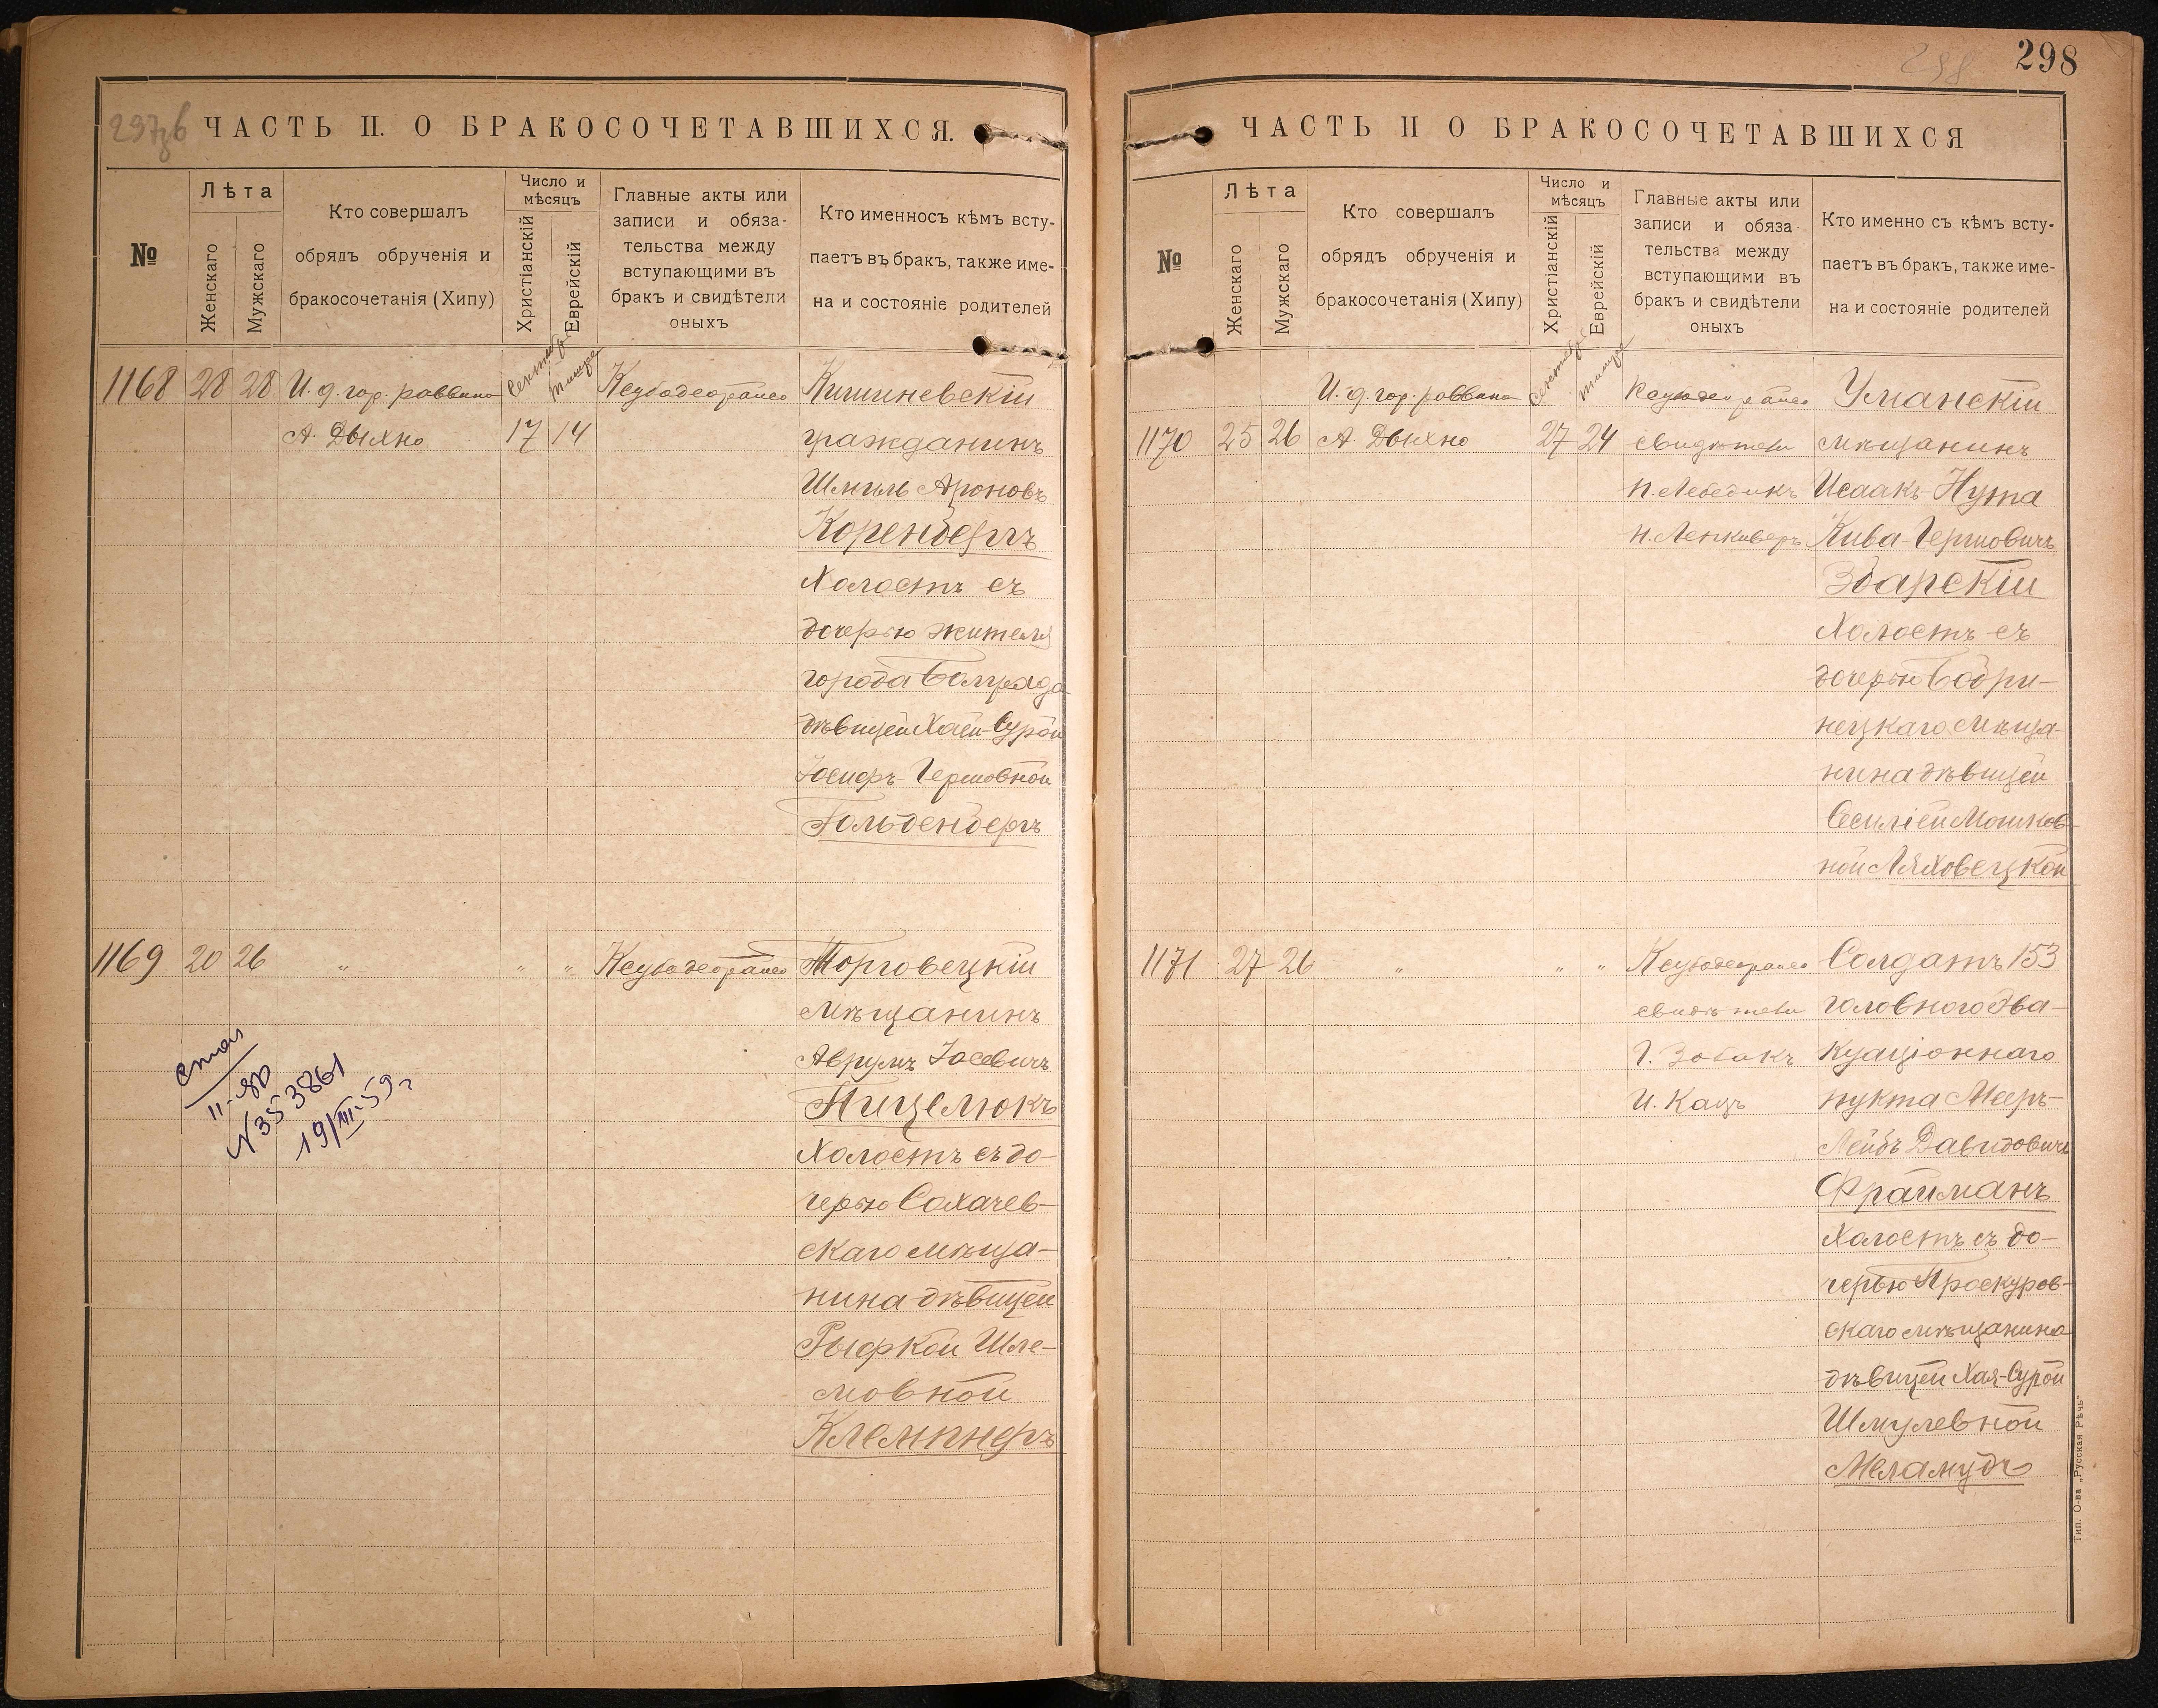 298
298
297зб
ЧАСТЬ II. О БРАКОСОЧЕТАВШИХСЯ.
№
Лѣта
Женскаго
Мужскаго
Кто совершалъ
обрядъ обрученія и
бракосочетанія (Хипу)
Число и
мѣсяцъ
Христіанскій
Еврейскій
Главные акты или
записи и обяза-
тельства между
вступающими въ
бракъ и свидѣтели
оныхъ
Кто именносъ кѣмъ всту-
паетъ въ бракъ, также име-
на и состояніе родителей
1168 28 28 И. д. гор. раввина
А. Дыхно
Сентябр
Тишре
17 14
Кишиневскій
гражданинъ
Шмиль Ароновъ
Коренбергъ
Холостъ съ
дочерью жителя
города Болграда
дѣвицей Хаей-Сурой
Іосифъ-Гершовной
Гольденбергъ
1169 20 26 " " "
Торговецкій
Мѣщанинъ
Аврумъ Іосевичъ
Ницелюкъ
Холостъ съ до-
черью Сохачев-
скаго мѣща-
нина дѣвицей
Рыфкой Шле-
мовной
Клемпнеръ
II-
N 353861
19/III-59г
ЧАСТЬ II О БРАКОСОЧЕТАВШИХСЯ
№
Лѣта
Женскаго
Мужскаго
Кто совершалъ
обрядъ обрученія и
бракосочетанія (Хипу)
Число и
мѣсяцъ
Христіанскій
Еврейскій
Главные акты или
записи и обяза-
тельства между
вступающими въ
бракъ и свидѣтели
оныхъ
Кто именно съ кѣмъ всту-
паетъ въ бракъ, также име-
на и состояніе родителей
И. д. гор. раввина
1170 25 26 А. Дыхно
Сентябр
Тишре
27 24
свидѣтели
Н. Лебедикъ
Н. Ленкиверъ
Уманскій
мѣщанинъ
Исаакъ-Нута
Кива-Гершовичъ
Збарскій
Холостъ съ
дочерью Бобри-
нецкаго мѣща-
нина дѣвицей
Сесиліей Мошков-
ной Ляховецкой
1171 27 26 " " "
свидѣтели
Г. Зобакъ
И. Кацъ
Солдатъ 153
головного эва-
куаціоннаго
пункта Мееръ-
Лейбъ Давидовичъ
Фрайманъ
Холостъ съ до-
черью Проскуров-
скаго мѣщанина
дѣвицей Хая-Сурой
Шмулевной
Меламудъ
Тип. О-ва „Русская Рѣчь"